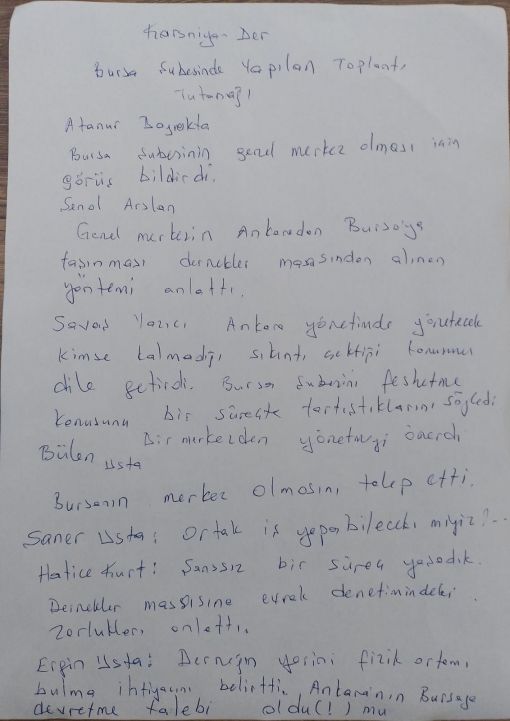 Karsniyan Der
Bursa Şubesinde Yapılan Toplantı
Tutanağı
Atanur Bayrakta
Bursa Şubesinin genel merkez olması için
görüş bildirdi.
Şenol Arslan
Genel merkezin Ankaradan Bursa'ya
taşınması dernekler masasından alınan
yöntemi anlattı.
Savaş Yazıcı Ankara yönetimde yönetecek
kimse kalmadığı sıkıntı çektiği konusunu
dile getirdi. Bursa Şubesini feshetme
konusunu bir süreçte tartıştıklarını söyledi
Bir merkezden yönetmeyi önerdi
Bülen Usta
Bursanın merkez olmasını talep etti.
Saner Usta: Ortak iş yapabilecek miyiz?...
Hatice Kurt: Şanssız bir süreç yaşadık.
Dernekler massisine evrak denetimindeki
zorlukları anlattı.
Ergin Usta: Derneğin yerini fizik ortamı
bulma ihtiyacını belirtti. Ankara'nın Bursaya
devretme talebi oldu(!) mu